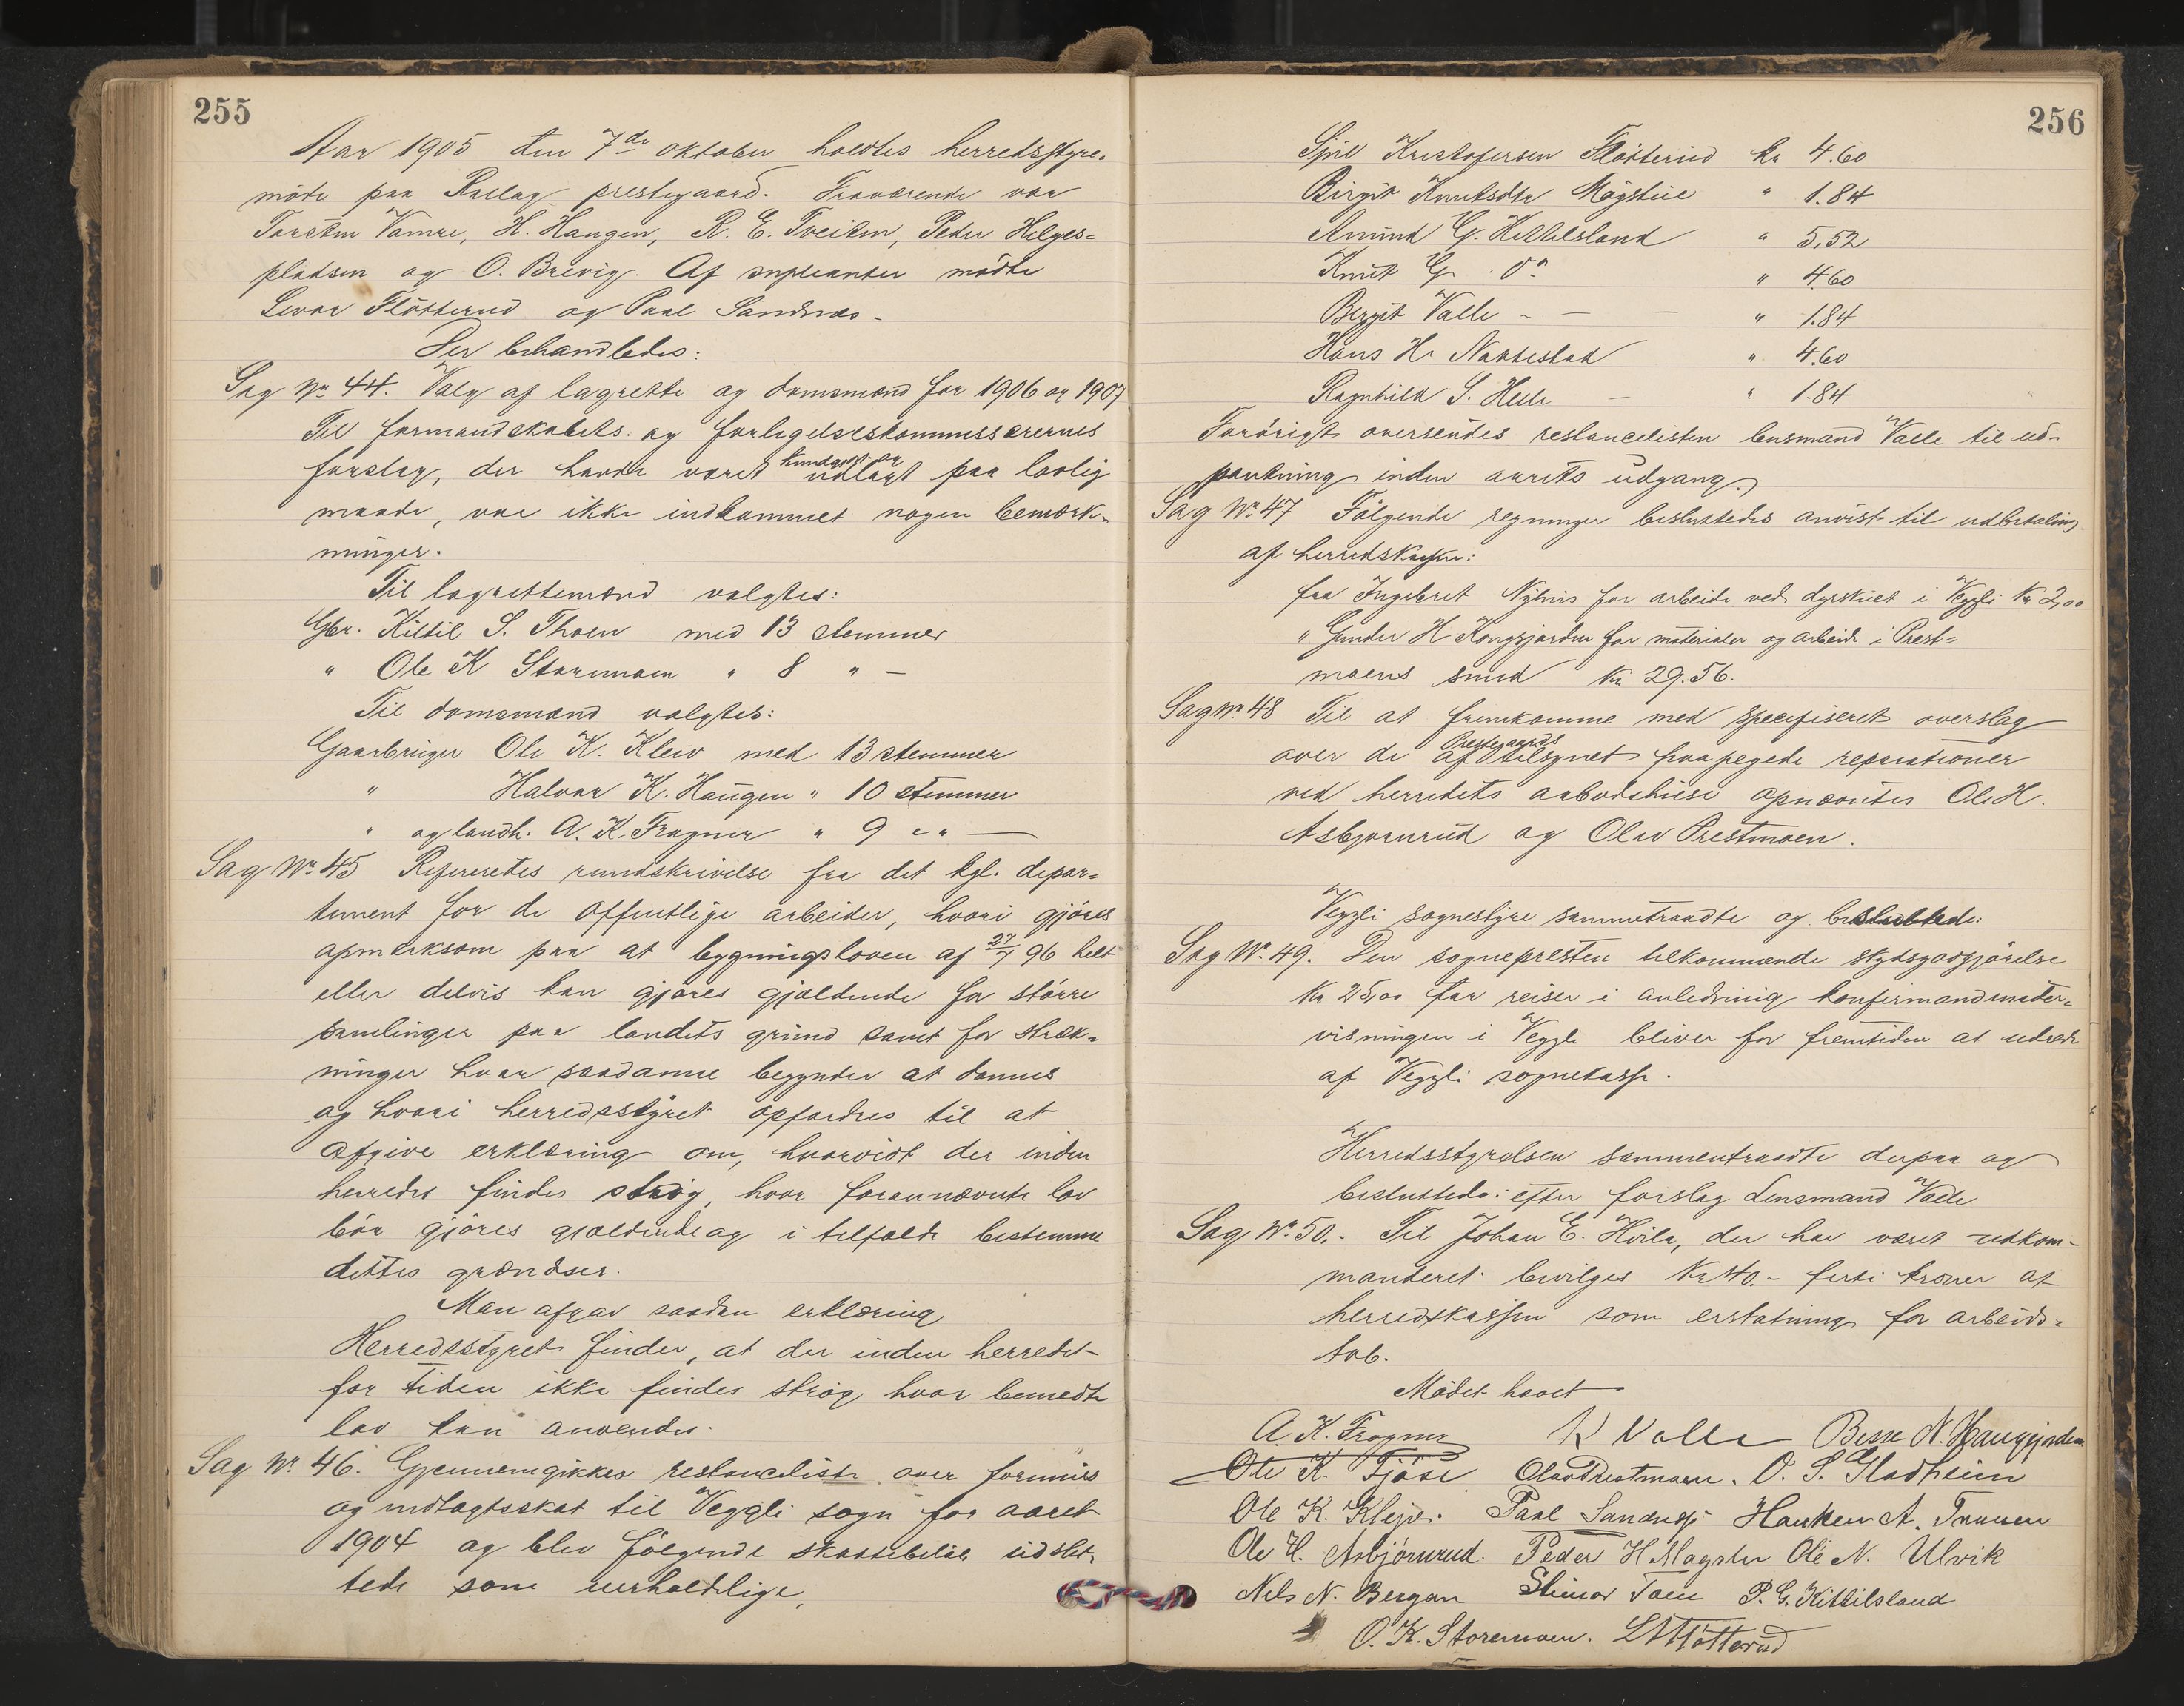 255
Aar 1905 den 7de oktober holdtes herredsstyre-
møde paa Rollag prestegaard. Fraværende var
Torsten Vamre, H. Haugen, R. E. Tveiten, Peder Helges-
pladsen og O. Brevig. Af supleanter mødte
Sevar Fløtterud og Paal Sandnes.
Der behandledes:
Sag No 44. Valg af lagrette og domsmænd for 1906 og 1907
Til formandskabets og forligelseskommisserernes
forslag, der havde været kundgjort og udlagt paa lovlig
maade, var ikke indkommet nogen bemærk-
ninger.
Til lagrettemænd valgtes:
Gbr. Kittil S. Thoen med 13 stemmer
" Ole K Storemoen " 8 " -
Til domsmænd valgtes:
Gaarbruger Ole K. Kleiv med 13 stemmer
" Halvar K. Haugen " 10 stemmer
" og landh. A. K. Fragner " 9 " " —
Sag No 45 Refereredes rundskrivelse fra det kgl. depar-
tement for de offentlige arbeider, hvori gjøres
opmerksom paa at bygningsloven af 27/7 96 helt
eller delvis kan gjøres gjældende for større
samlinger paa landets grund samt for stræk-
ninger hvor saadanne begynder at dannes
og hvori herredsstyret opfordres til at
afgive erklæring om, hvorvidt der inden
herredet findes strøg, hvor forannævnte lov
bør gjøres gjældende og i tilfælde bestemme
dettes grændser.
Man afgav saadan erklæring
Herredsstyret finder, at der inden herredet
for tiden ikke findes strøg hvor bemeldte
lov kan anvendes.
Sag No 46. Gjennemgikkes restanceliste over formues
og indtægtsskat til Veggli sogn for aaret
1904 og blev følgende skattebeløb udslet-
tede som uerholdelige,
256
Kristofersen Fløtterud kr 4.60
Birgit Knutsdtr Møgstue " 1.84
Amund G. Kittilsland " 5,52
Knut G Do " 4.60
Bergit Valle - — — " 1.84
Hans H. Nattestad " 4.60
Ragnhild S. Helle — " 1.84
Forøvrigt oversendes restancelisten lensmand Valle til ud-
pantning inden aarets udgang.
Sag No 47 Følgende regninger besluttedes anvist til udbetaling
af herredskassen:
fra Ingebret Nyhus for arbeide ved dyrskuet i Veggli Kr 2,00
" Gunder H Kongsjorden for materialer og arbeide i Prest-
moens sund Kr 29.56.
Sag No 48 Til at fremkomme med specifiseret overslag
over de af Prestegaards tilsynet paapegede reparationer
ved herredets aabodshuse opnævntes Ole H.
Asbjørnrud og Olav Prestmoen.
Veggli sognestyre sammentraadte og besluttede:
Sag No 49. Den sognepresten tilkommende skydsgodtgjørelse
Kr 25,00 for reiser i anledning konfirmandunder-
visningen i Veggli bliver for fremtiden at udrede
af Veggli sognekasse.
Herredsstyrelsen sammentraadte derpaa og
besluttede: efter forslag Lensmand Valle
Sag No 50.- Til Johan E. Hvila, der har været udkom-
manderet bevilges Kr 40.- førti kroner af
herredskassen som erstatning for arbeids-
tab.
Mødet hævet
A. K. Fragner K Valle Besse N. Haugjorden
Ole K. Fjøse Olav Prestmoen. O. S. Gladheim
Ole K. Kleiv. Paal Sandnes Haaken A. Traaen
Ole H. Asbjørnrud. Peder H Magster Ole N. Ulvik
Nels N. Bergan Steinar Toen P. G. Kittilsland
O. K. Storemoen. Fløtterud